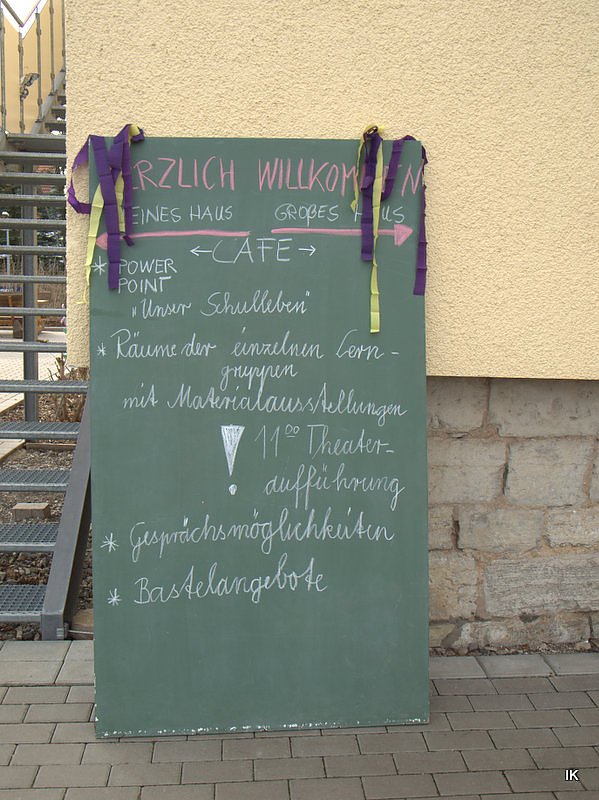 ERZLICH WILLKOMMEN
EINES HAUS GROßES HAUS
←CAFE→
* POWER
POINT
„Unser Schulleben"
* Räume der einzelnen Lern-
gruppen
mit Materialausstellungen
! 11⁰⁰ Theater-
aufführung
* Gesprächsmöglichkeiten
* Bastelangebote
IK